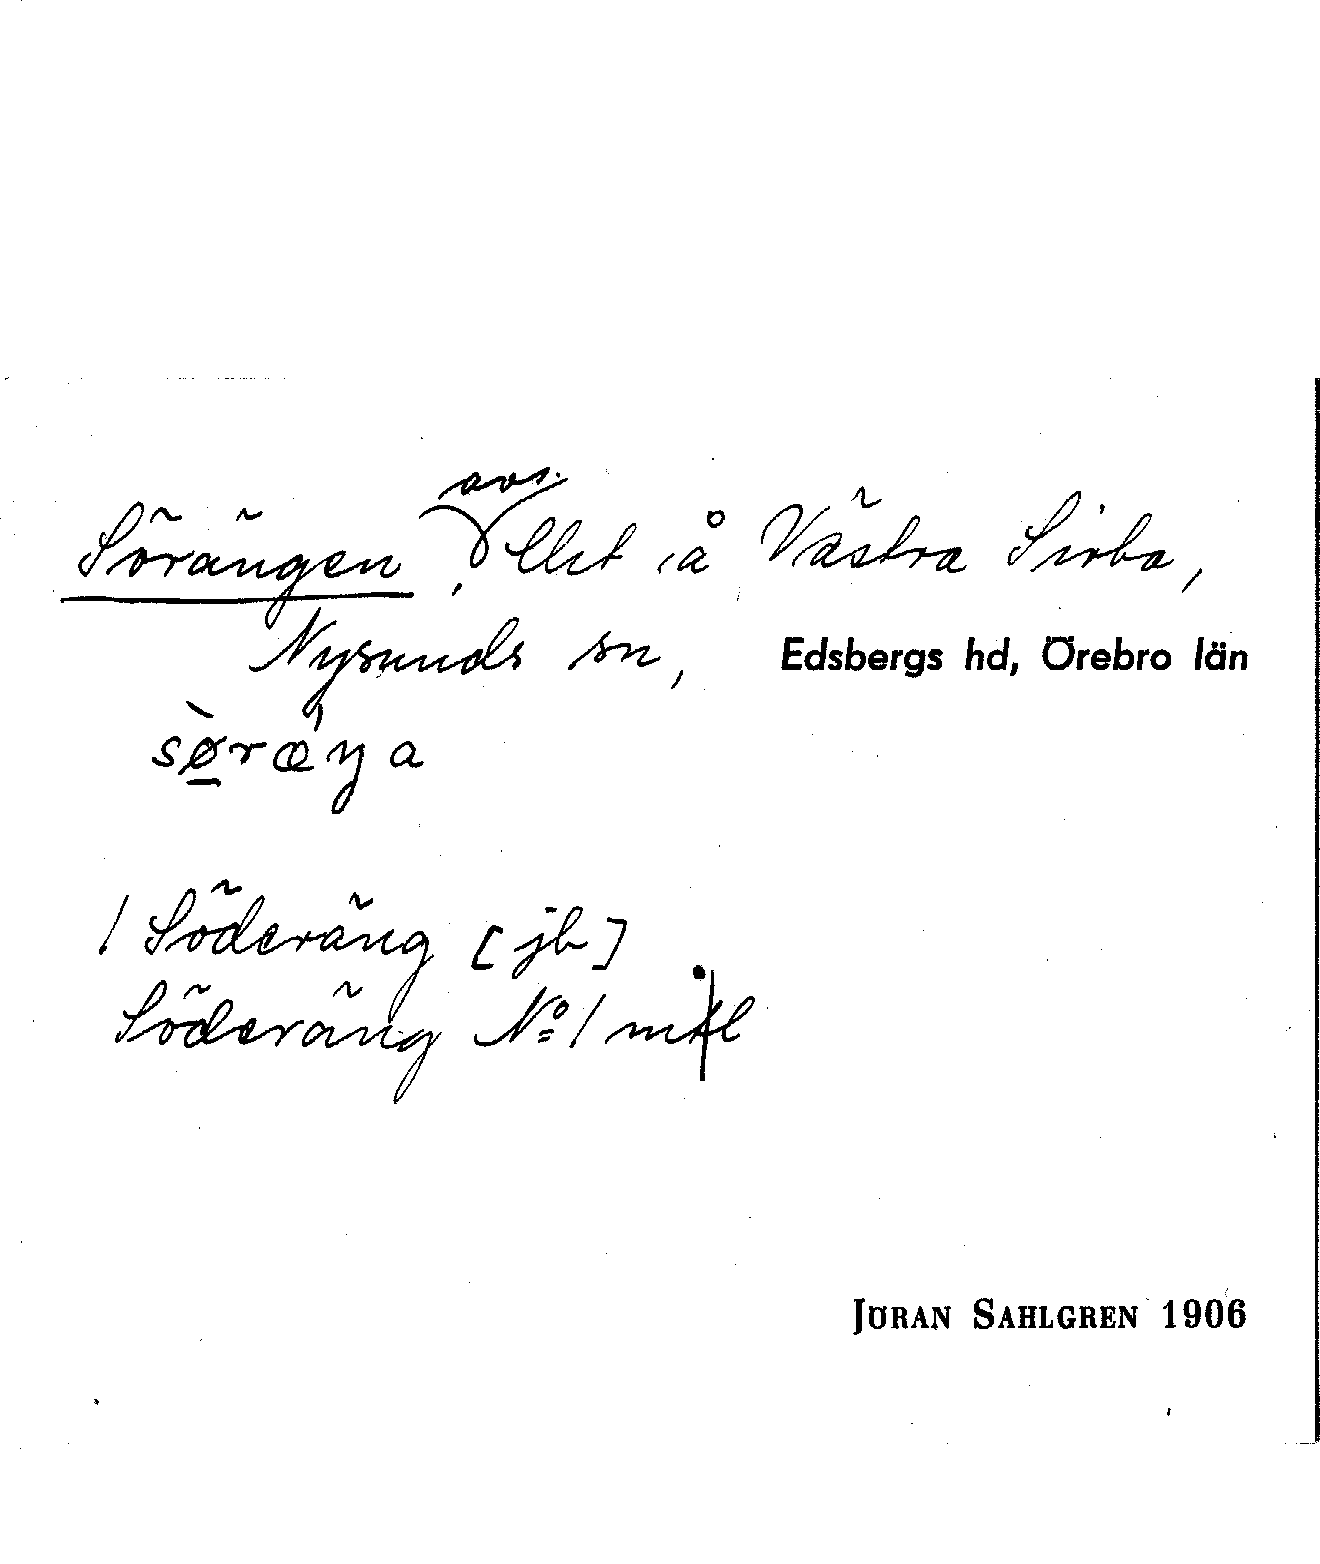 Sörängen, avs. Uet å Västra Sirba,
Nysunds sn, Edsbergs hd, Örebro län
sø̱̀ræ̀ŋa
/ Söderäng [jb]
Söderäng No 1 mtl
JÖRAN SAHLGREN 1906